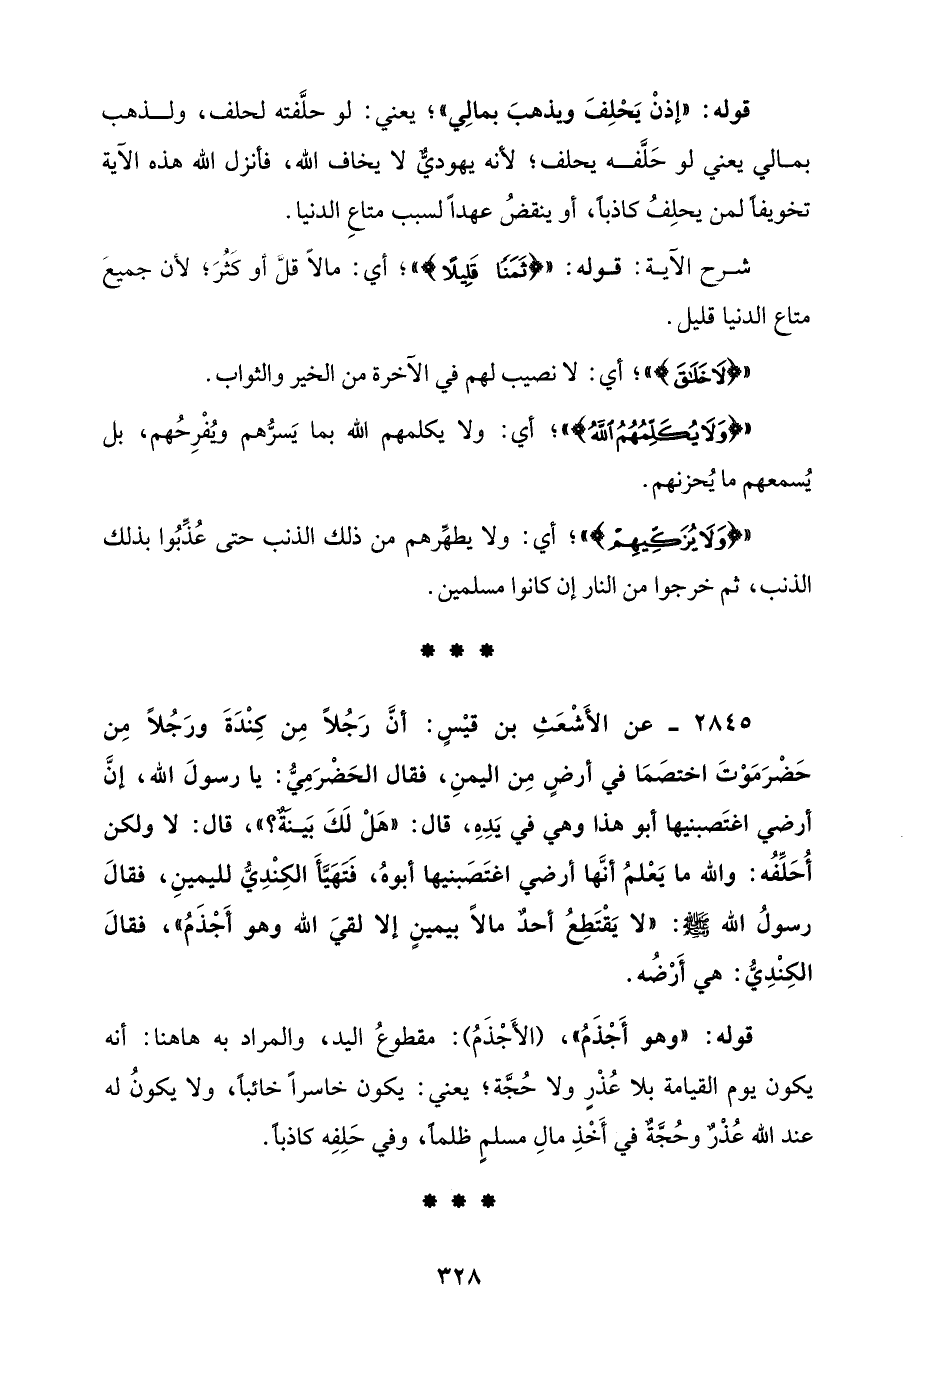 قوله: «إذنْ يَحْلِفَ ويذهبَ بمالِي»؛ يعني: لو حلَّفته لحلف، ولـذهب
بمـالي يعني لو حَلَّفـه يحلف؛ لأنه يهوديٌّ لا يخاف الله، فأنزل الله هذه الآية
تخويفاً لمن يحلِفُ كاذباً، أو ينقضُ عهداً لسبب متاعِ الدنيا.
شـرح الآيـة: قـوله: «﴿ثَمَنًا قَلِيلًا﴾»؛ أي: مالاً قلَّ أو كَثُرَ؛ لأن جميعَ
متاع الدنيا قليل.
«﴿لَا خَلَاقَ﴾»؛ أي: لا نصيب لهم في الآخرة من الخير والثواب.
«﴿وَلَا يُكَلِّمُهُمُ ٱللَّهُ﴾»؛ أي: ولا يكلمهم الله بما يَسرُّهم ويُفْرِحُهم، بل
يُسمعهم ما يُحزنهم.
«﴿وَلَا يُزَكِّيهِمْ﴾»؛ أي: ولا يطهِّرهم من ذلك الذنب حتى عُذِّبُوا بذلك
الذنب، ثم خرجوا من النار إن كانوا مسلمين.
* * *
٢٨٤٥ ـ عن الأَشْعَثِ بن قيْسٍ: أنَّ رَجُلاً مِن كِنْدَةَ ورَجُلاً مِن
حَضْرَمَوْتَ اختصَمَا في أرضٍ مِن اليمنِ، فقال الحَضْرَمِيُّ: يا رسولَ الله، إنَّ
أرضي اغتَصبنيها أبو هذا وهي في يَدِهِ، قال: «هَلْ لَكَ بَيـنَةٌ؟»، قال: لا ولكن
أُحَلِّفُه: والله ما يَعْلمُ أنَّها أرضي اغتَصَبنيها أبوهُ، فَتَهَيَّأَ الكِنْدِيُّ لليمينِ، فقالَ
رسولُ الله ﷺ: «لا يَقْتَطِعُ أحدٌ مالاً بيمينٍ إلا لقيَ الله وهو أَجْذَمُ»، فقالَ
الكِنْدِيُّ: هي أَرْضُه.
قوله: «وهو أَجْذَمُ»، (الأَجْذَمُ): مقطوعُ اليد، والمراد به هاهنا: أنه
يكون يوم القيامة بلا عُذْرٍ ولا حُجَّة؛ يعني: يكون خاسراً خائباً، ولا يكونُ له
عند الله عُذْرٌ وحُجَّةٌ في أَخْذِ مالِ مسلمٍ ظلماً، وفي حَلِفِه كاذباً.
* * *
٣٢٨